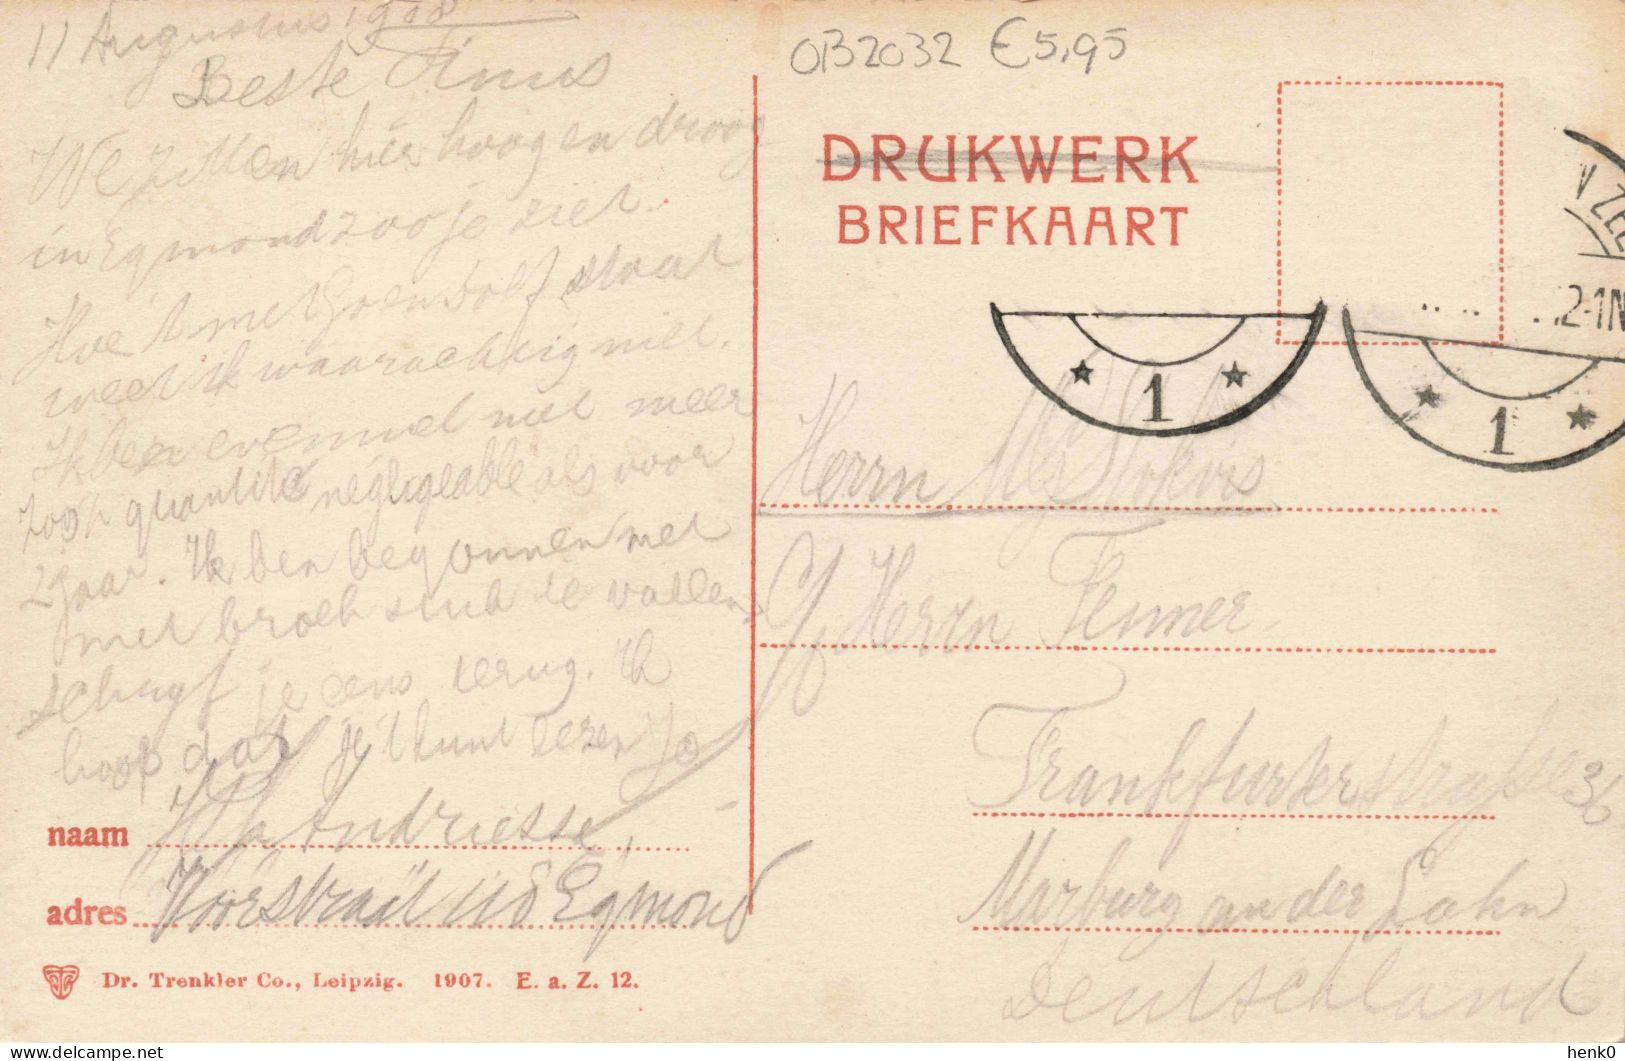 11 Augustus 1908
Beste Tinus
We zitten hier hoog en droog
in Egmond zoo je ziet.
Hoe 't met Goen Dolf staat
weet ik waarachtig niet.
Ik ben evenwel niet meer
zoo'n quantité négligeable als voor
2 jaar. Ik ben begonnen met
met broek stuk te vallen
schrijf je eens terug. Ik
hoop dat je 't kunt lezen Jo
naam Andriesse,
adres Voorstraat 118 Egmond
Dr. Trenkler Co., Leipzig. 1907. E. a. Z. 12.
OB2032 €5,95
DRUKWERK
BRIEFKAART
V ZEE
12-1N
1
1
Herrn Stokvis
Herrn Flemmer
Frankfurterstrasse 36
Marburg an der Lahn
Deutschland
henk0